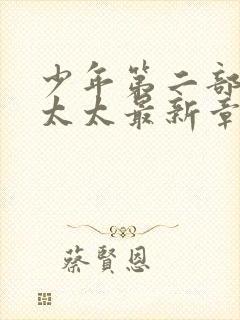 少年第二部
太太最新章
蔡賢恩